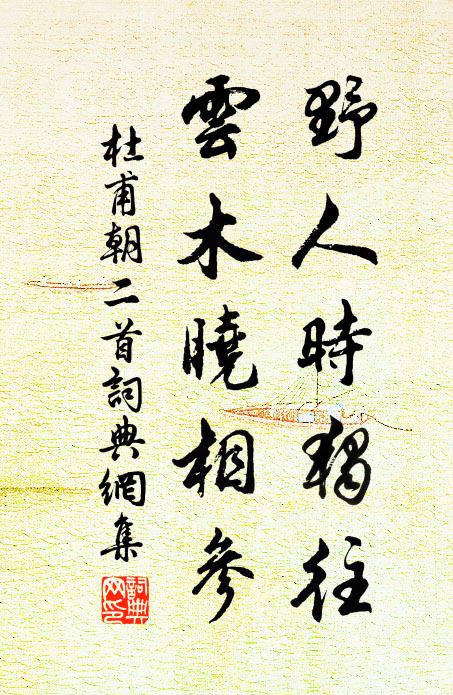 野人時獨往
雲木曉相參
杜甫朝二首詞典網集
詞典網印